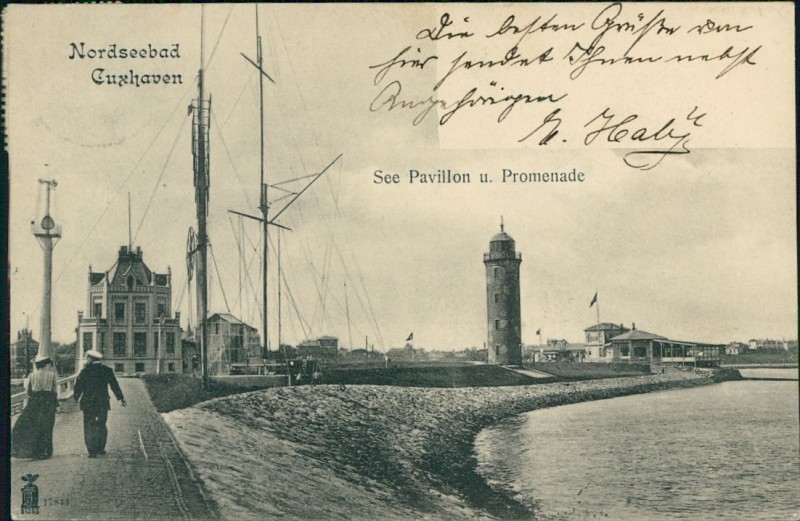 Nordseebad
Cuxhaven
Die besten Grüße von
hier sendet Ihnen nebst
Angehörigen
See Pavillon u. Promenade
17841